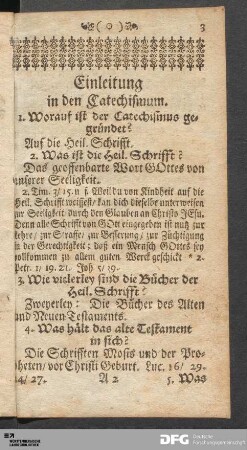 ( o ) 3
Einleitung
in den Catechismum.
1. Worauf ist der Catechismus ge-
gründet?
Auf die Heil. Schrifft.
2. Was ist die Heil. Schrifft?
Das geoffenbarte Wort GOttes von
unserer Seeligkeit.
2 Tim. 3/15. Weil du von Kindheit auf die
Heil. Schrifft weißest/ kan dich dieselbe unterweisen
zur Seeligkeit durch den Glauben an Christo JEsu.
Denn alle Schrifft von GOtt eingegeben ist nutz zur
Lehre/ zur Straffe/ zur Besserung/ zur Züchtigung
in der Gerechtigkeit; daß ein Mensch GOttes sey
vollkommen zu allem guten Werck geschickt * 2.
Petr. 1/19. 21. Joh 5/39.
3. Wie vielerley sind die Bücher der
Heil. Schrifft?
Zweyerley: Die Bücher des Alten
und Neuen Testaments.
4. Was hält das alte Testament
in sich?
Die Schrifften Mosis und der Pro-
pheten/ vor Christi Geburt. Luc. 16/ 29.
24/ 27. A 2 5. Was
DFG